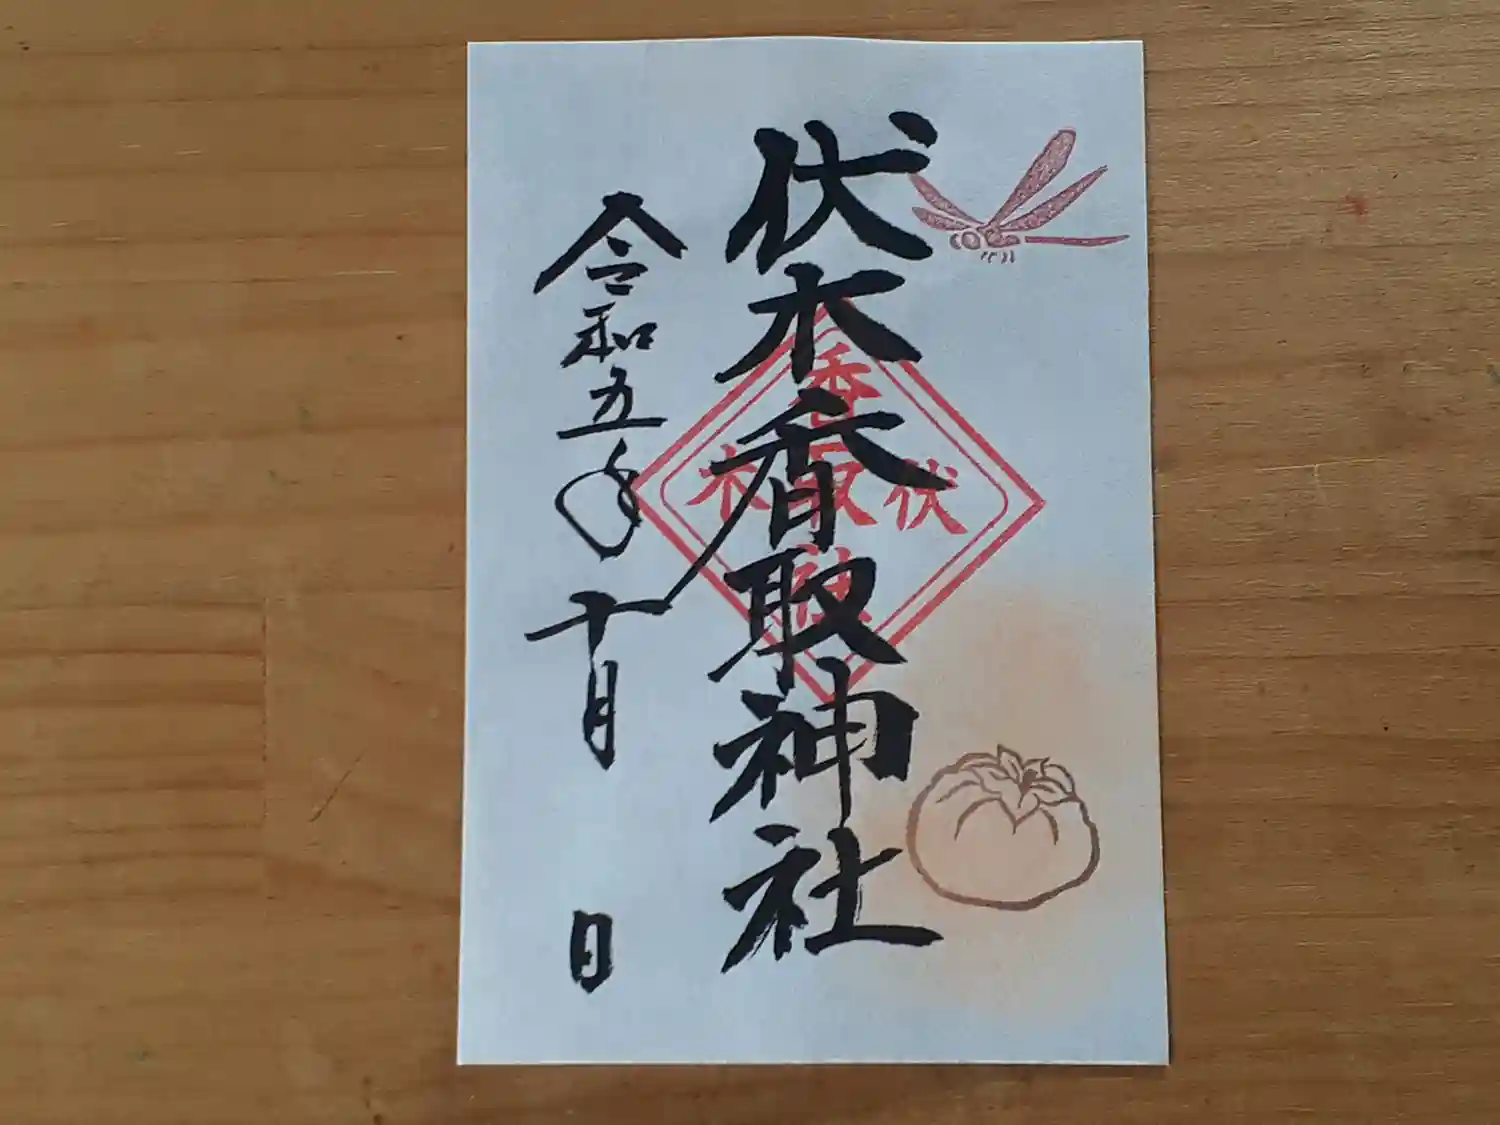 伏木香取神社
令和五年十月 日
伏木
香取神社